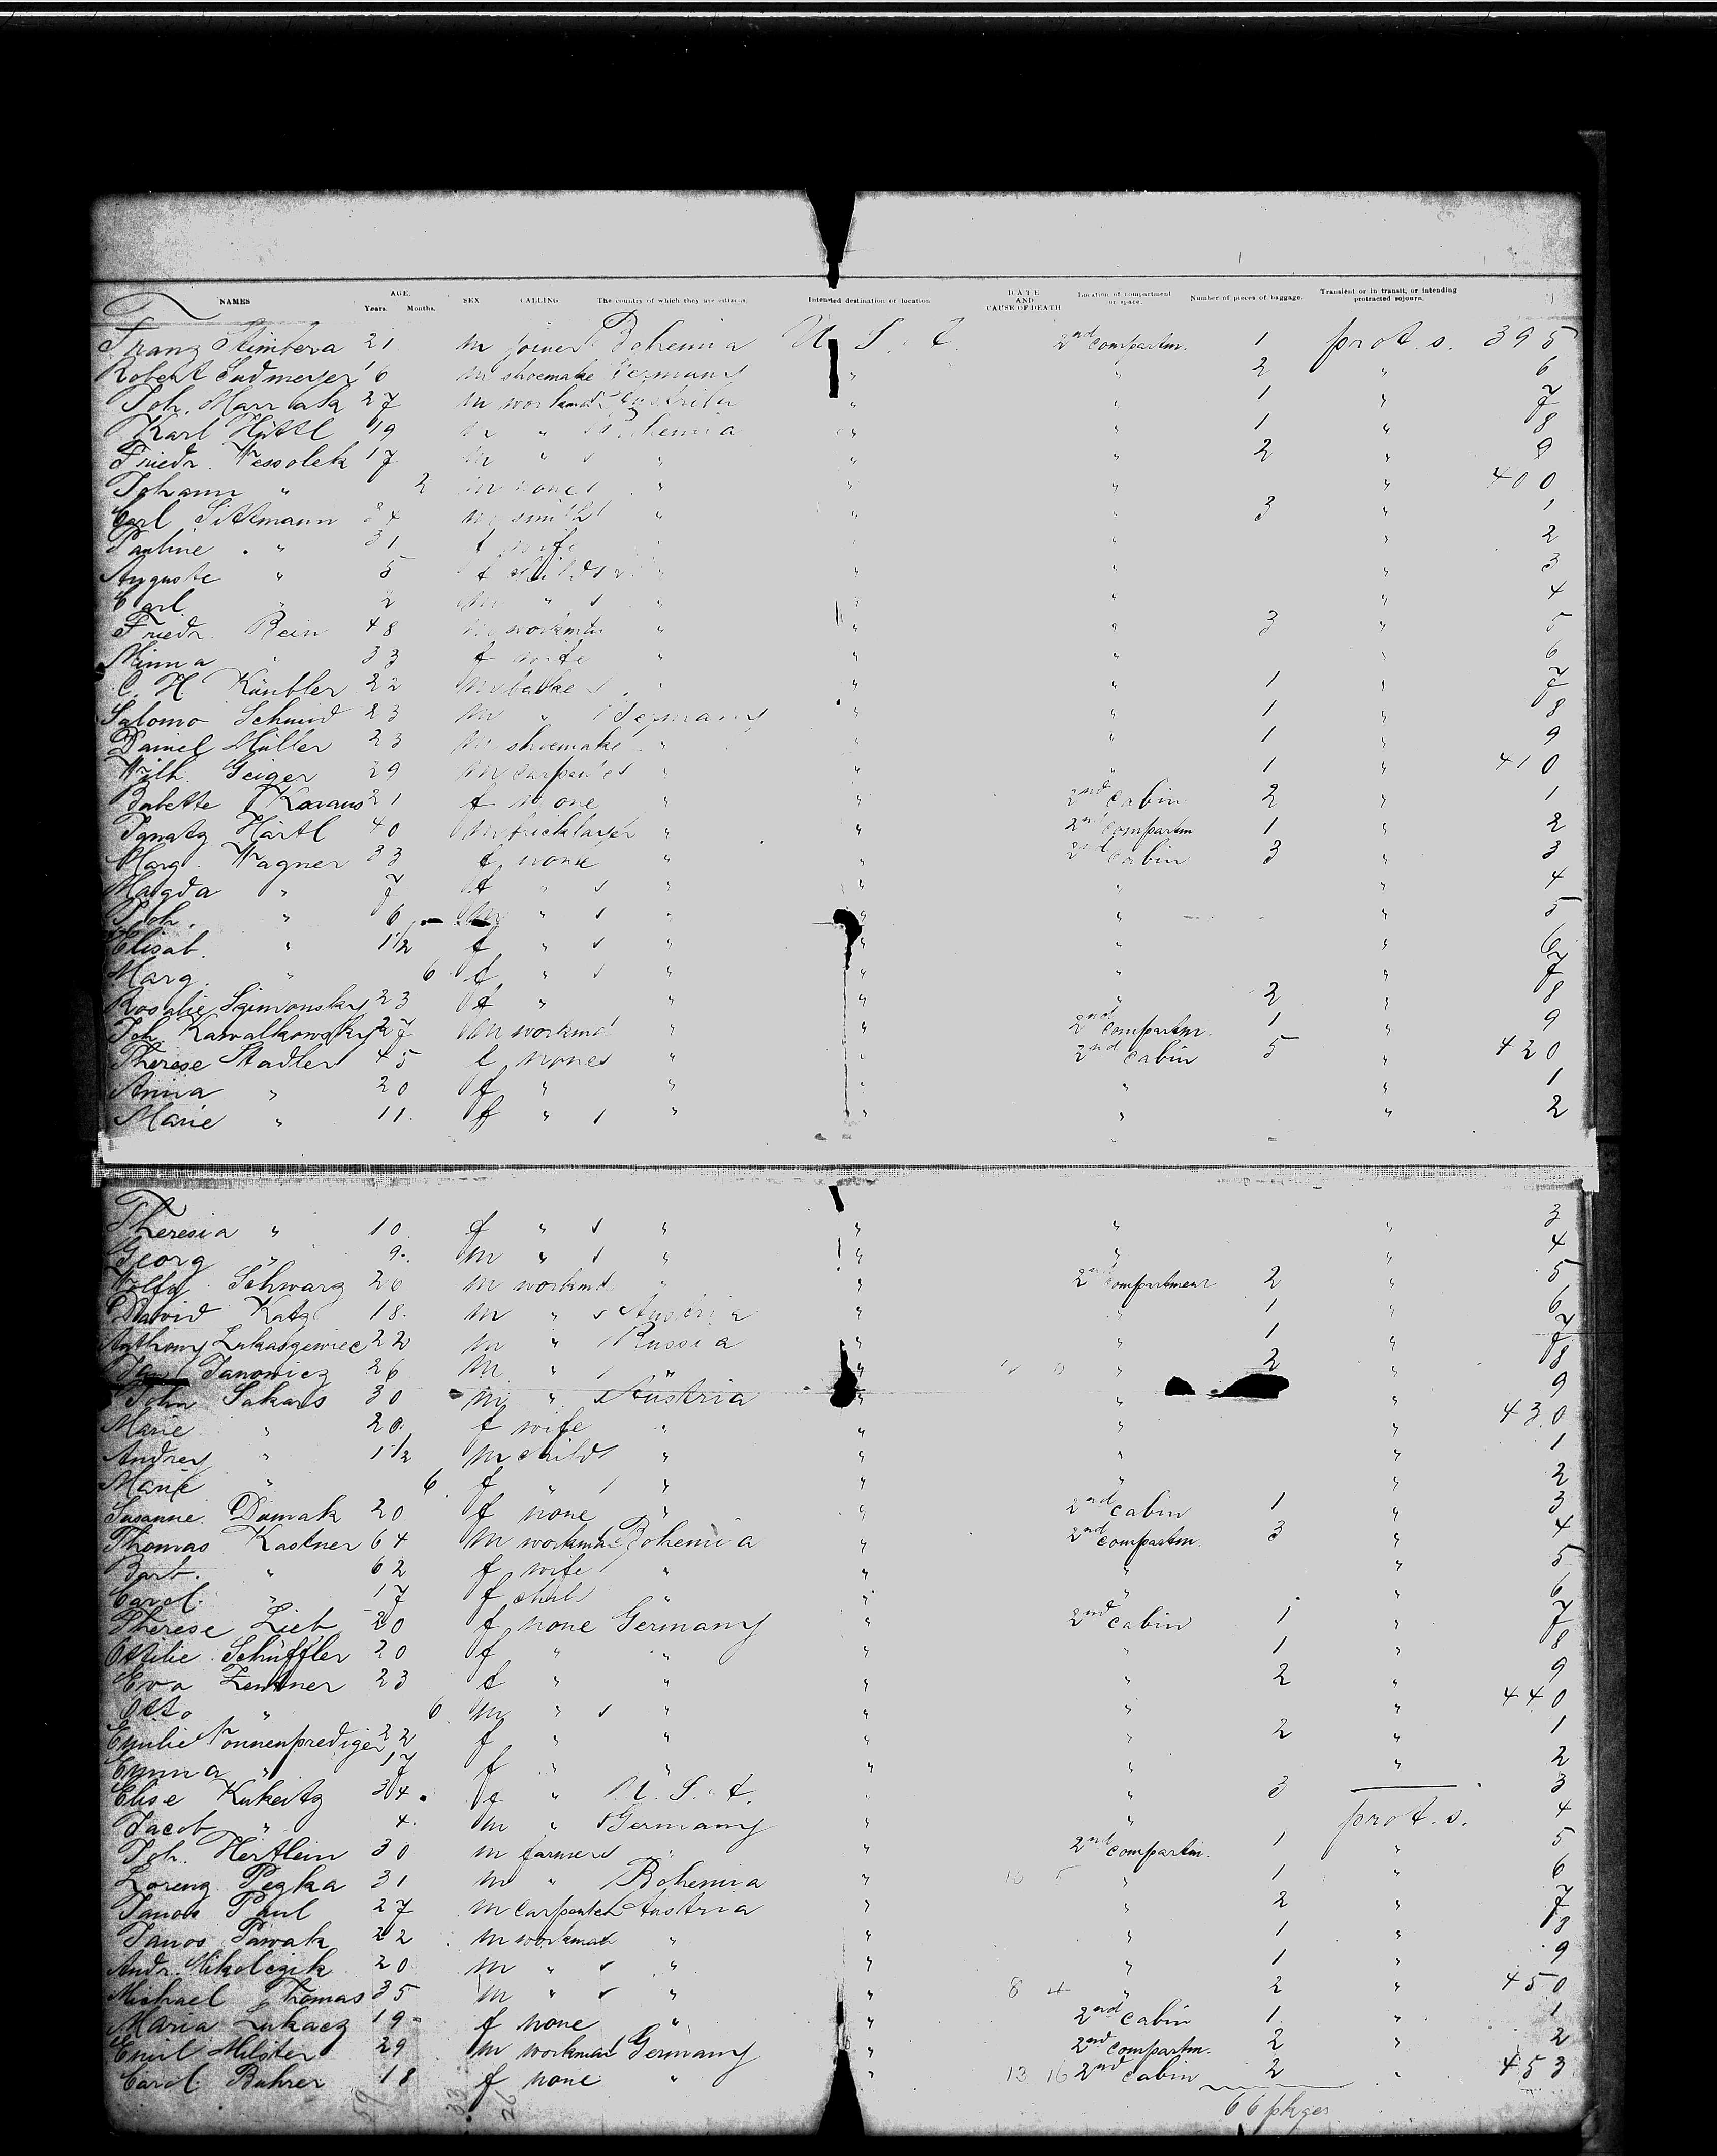 NAMES AGE. Years. Months. SEX CALLING The country of which they are citizens Intended destination or location DATE AND CAUSE OF DEATH Location of compartment or space. Number of pieces of baggage. Transient or in transit, or intending protracted sojourn.
Franz Stimbera 21 m joiner Bohemia U. S. A. 2nd compartm. 1 prot. s. 395
Robert m shoemake Germany " " 2 " 6
Joh. 27 m workman Austria " " 1 " 7
Karl Hüttl 19 m " Bohemia " " 1 " 8
Friedr. Wessolek 17 m " " " " 2 " 9
Johann " 2 m none " " " " 400
Carl Sittmann 34 m smith " " " 3 " 1
Pauline " 31 f wife " " " 2
Auguste " 5 f child " " " " 3
Carl " 2 m " " " " " 4
Friedr. Bein 48 m workman " " " 3 " 5
Minna " 33 f wife " " " " 6
C. H. Künbler 22 m " " " 1 " 7
Salomo Schmid 23 m " Germany " " 1 " 8
Daniel Müller 23 m shoemake " " " 1 " 9
Wilh. Geiger 29 m carpenter " " " 1 " 410
Babette Kraus 21 f none " " 2nd cabin 2 " 1
Ignatz Härtl 40 m bricklayer " " 2nd compartm 1 " 2
Marg. Wagner 33 f none " " 2nd cabin 3 " 3
Magda " 7 f " " " " " 4
Joh. " 6 m " " " " " 5
Elisab. " 1 1/2 f " " " " " 6
Marg. " 6 f " " " " " 7
Rosalie Szimonsky 23 f " " " " 2 " 8
Joh. Kawalkowsky 27 m workman " " 2nd compartm. 1 " 9
Therese Stadler 45 f none " " 2nd cabin 5 " 420
Anna " 20 f " " " " " 1
Marie " 11. f " " " " " 2
Theresia " 10. f " " " " " 3
Georg " 9. m " " " " " 4
Wolfg. Schwarz 20 m workman " " 2nd compartment 2 " 5
David Katz 18. m " Austria " " 1 " 6
Anthony Lukaszewiec 22 m " Russia " " 1 " 7
Jan Janowicz 26 m " " " 2 " 8
John Sakars 30 m " Austria " " " 9
Marie " 20. f wife " " " " 430
Andrey " 1 1/2 m child " " " " 1
Marie " 6. f " " " " " 2
Susanne Damak 20 f none " " 2nd cabin 1 " 3
Thomas Kastner 64 m workman Bohemia " 2nd compartm. 3 " 4
Barb. " 62 f wife " " " " 5
Carol. " 17 f child " " " " 6
Therese Lieb 20 f none Germany " 2nd cabin 1 " 7
Ottilie Schüffler 20 f " " " " 1 " 8
Eva Zentner 23 f " " " " 2 " 9
Otto " 6 m " " " " " 440
Emilie Nonnenprediger 22 f " " " " 2 " 1
Emma " 17 f " " " " " 2
Elise Kukeitz 34. f " U. S. A. " " 3 — 3
Jacob " 4. m " Germany " " prot. s. 4
Joh. Hertlein 30 m farmer " " 2nd compartm. 1 " 5
Lorenz Pegka 31 m " Bohemia " 10 5 " 1 " 6
Janos Paul 27 m carpenter Austria " " 2 " 7
Janos Pawak 22 m workman " " " 1 " 8
Andr. Mikolczik 20 m " " " " 1 " 9
Michael Thomas 35 m " " " 8 4 " 2 " 450
Maria Lukacz 19. f none " " 2nd cabin 1 " 1
Emil Milster 29 m workman Germany " 2nd compartm. 2 " 2
Carol. Buhrer 18 f none " " 13 16 2nd cabin 2 " 453
59 33 26 66 pkges